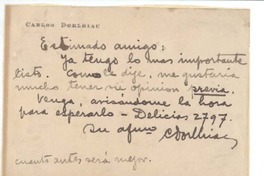 CARLOS DORLHIAC
Estimado amigo:
Ya tengo lo mas importante
listo. Como le dije, me gustaria
mucho tener su opinion previa.
Venga, avisándome la hora
para esperarlo - Delicias 2797.
Su afmo CDorlhiac
cuanto antes será mejor.